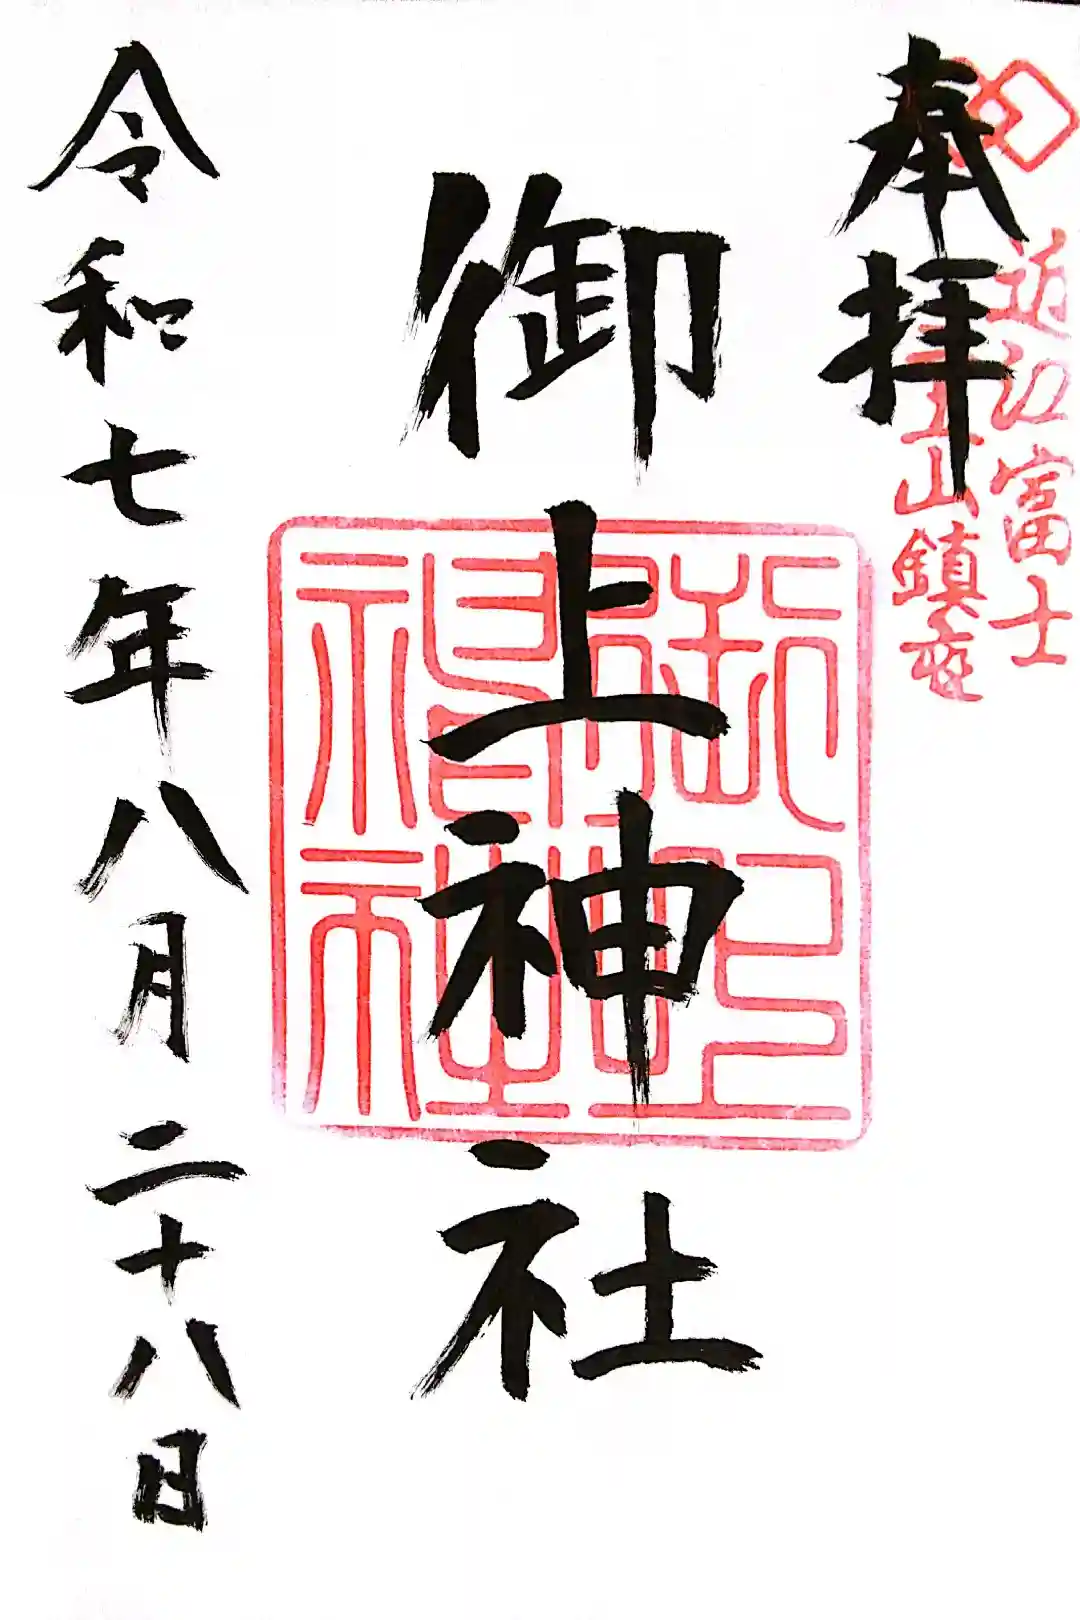 近江富士
三上山鎮座
奉拝
御上神社
御上神社
令和七年八月二十八日